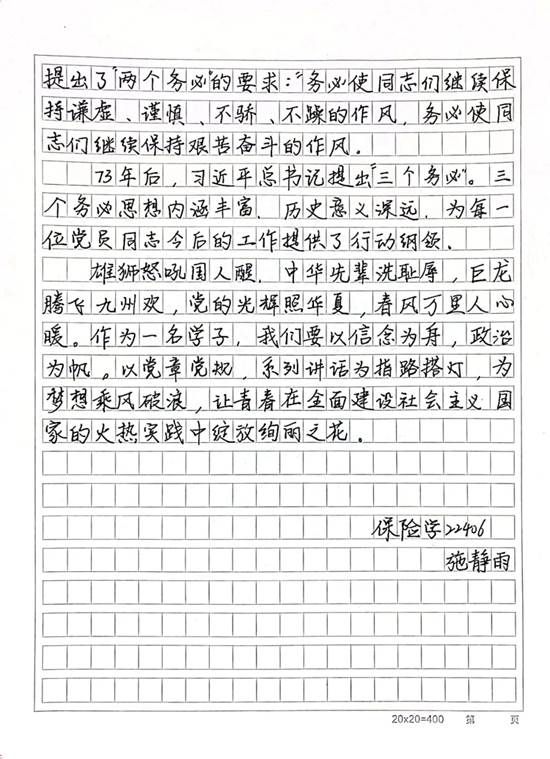 提出了“两个务必”的要求：“务必使同志们继续保
持谦虚、谨慎、不骄、不躁的作风，务必使同
志们继续保持艰苦奋斗的作风。
73年后，习近平总书记提出“三个务必”。三
个务必思想内涵丰富，历史意义深远，为每一
位党员同志今后的工作提供了行动纲领。
雄狮怒吼国人醒，中华先辈洗耻辱，巨龙
腾飞九州欢，党的光辉照华夏，春风万里人心
暖。作为一名学子，我们要以信念为舟，政治
为帆。以党章党规，系列讲话为指路搭灯，为
梦想乘风破浪，让青春在全面建设社会主义国
家的火热实践中绽放绚丽之花。
保险学22406
施静雨
20x20=400 第 页